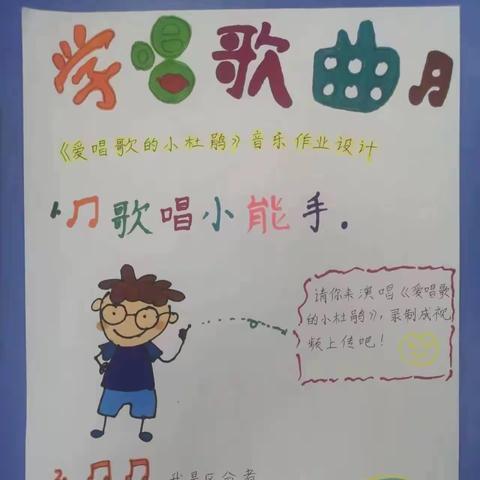 学唱歌曲
《爱唱歌的小杜鹃》音乐作业设计
歌唱小能手.
请你来演唱《爱唱歌
的小杜鹃》,录制成视
频上传吧!